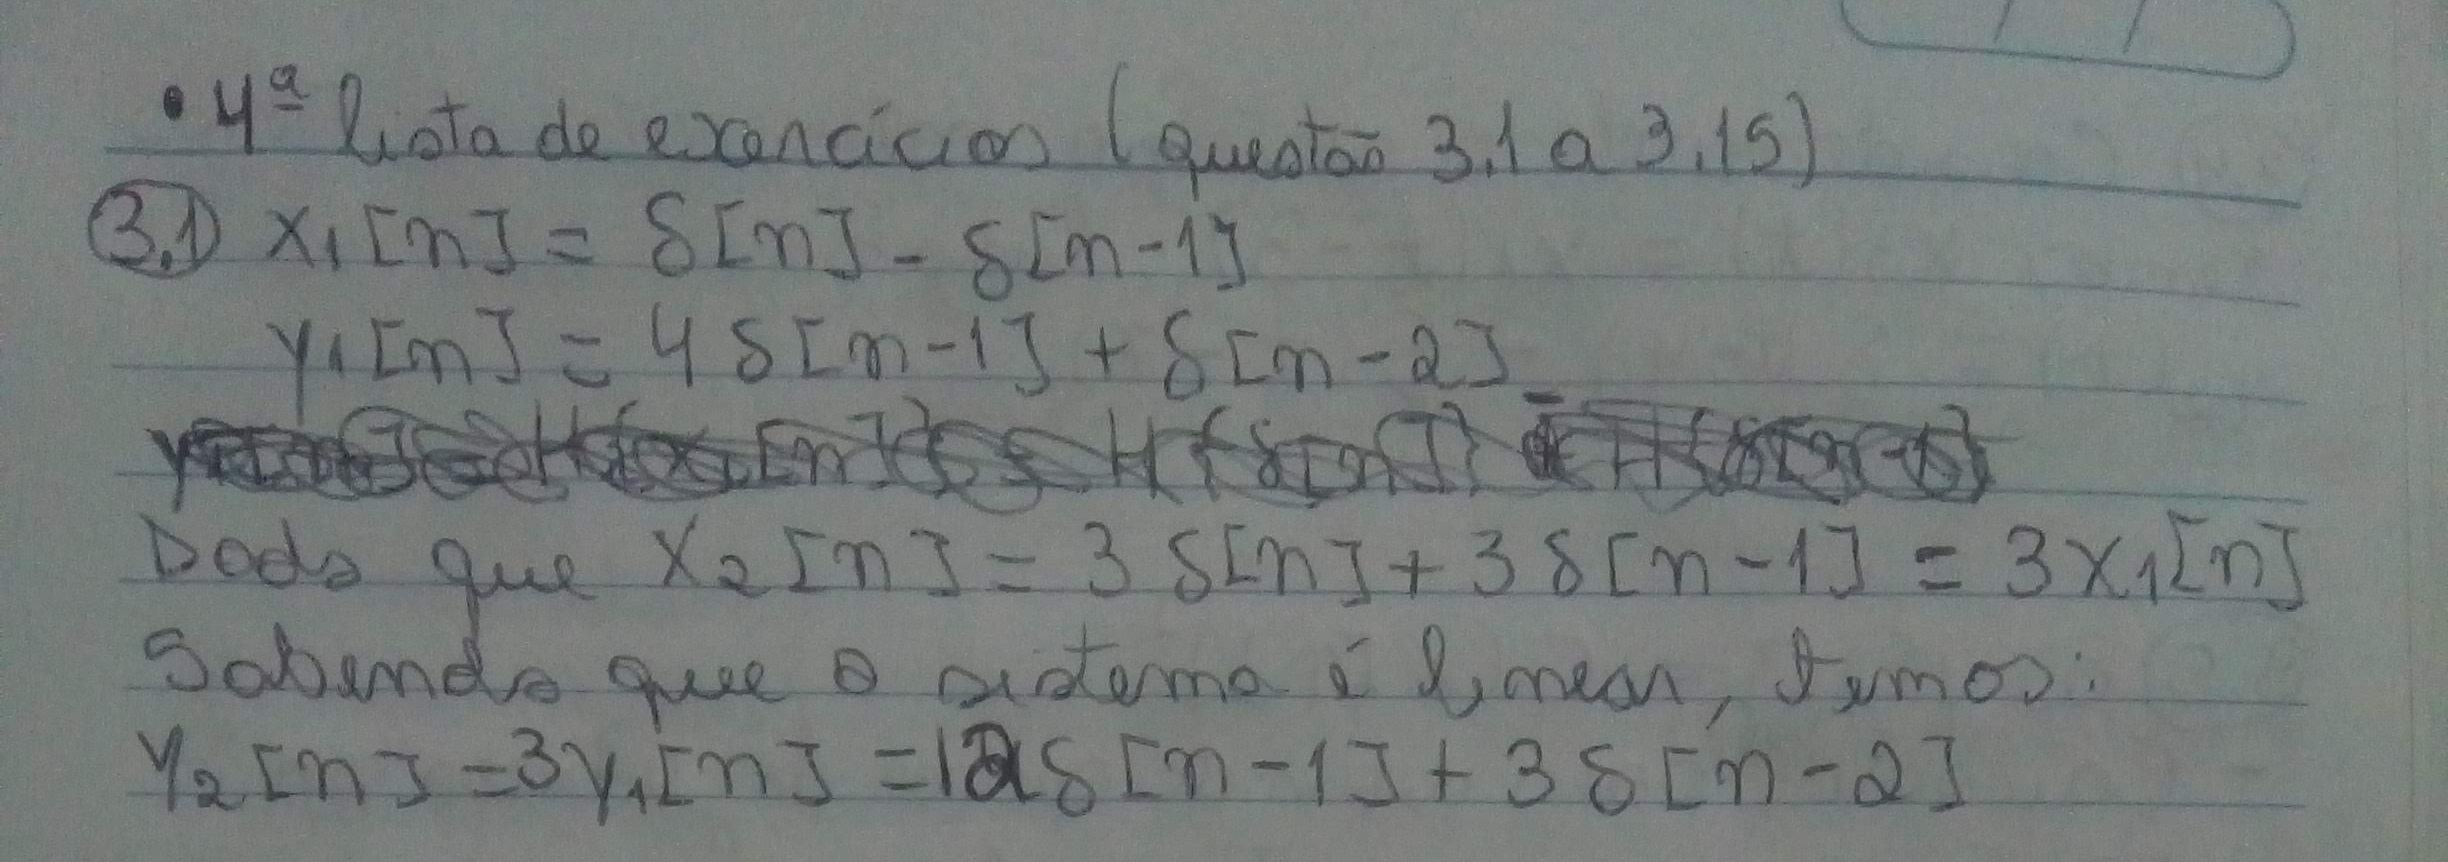 • 4ª lista de exercícios (questão 3.1 a 3.15)
3.1 x₁[n] = δ[n] - δ[n-1]
y₁[n] = 4δ[n-1] + δ[n-2]
Dado que x₂[n] = 3δ[n] + 3δ[n-1] = 3x₁[n]
Sabendo que o sistema é linear, temos:
y₂[n] = 3y₁[n] = 12δ[n-1] + 3δ[n-2]